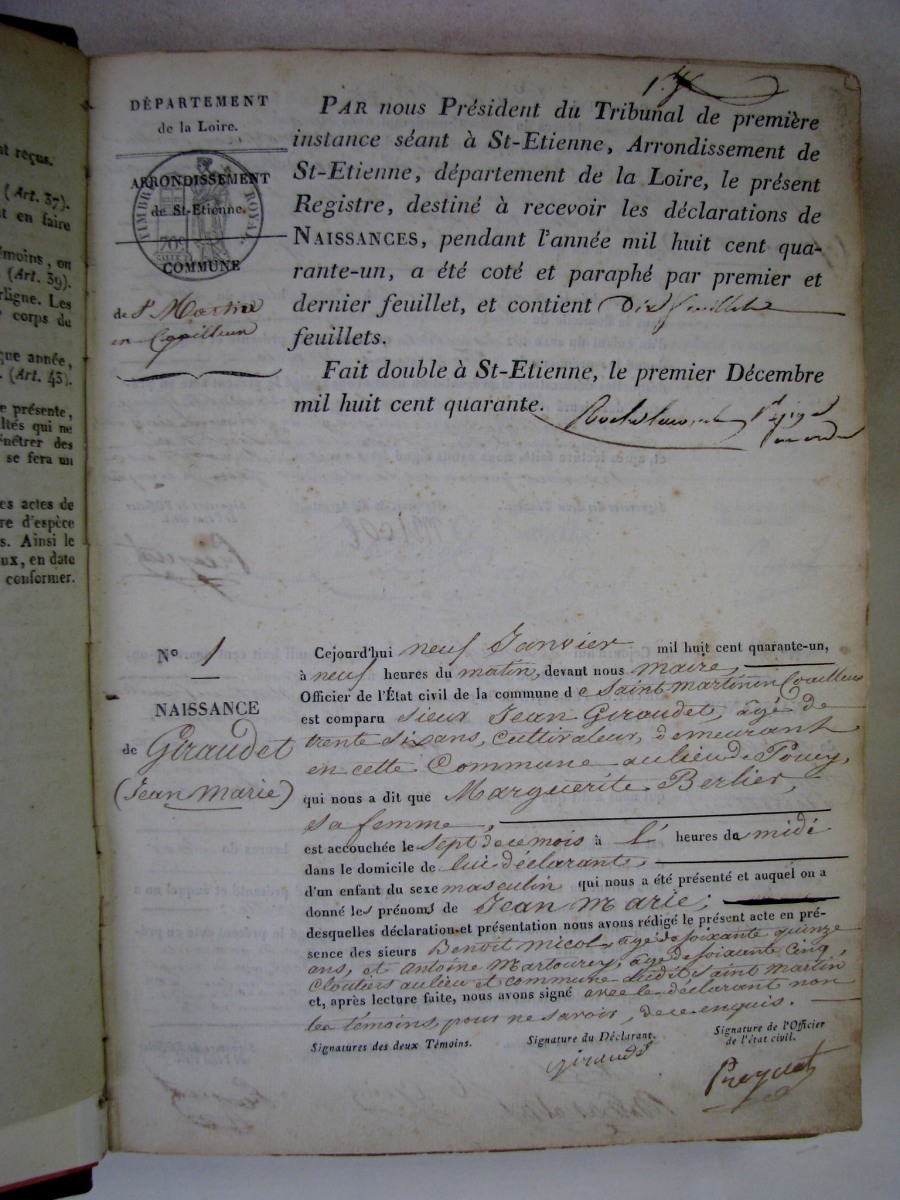 t reçus.
(Art. 37).
t en faire
émoins, on
(Art. 39).
rligne. Les
corps de
que année,
(Art. 43).
e présente,
ltés qui ne
énétrer des
se fera un
es actes de
re d'espèce
s. Ainsi le
ux, en date
conformer.
DÉPARTEMENT
de la Loire.
ARRONDISSEMENT
de St-Etienne.
COMMUNE
de St Martin
en
TIMBRE ROYAL
PAR nous Président du Tribunal de première
instance séant à St-Etienne, Arrondissement de
St-Etienne, département de la Loire, le présent
Registre, destiné à recevoir les déclarations de
NAISSANCES, pendant l'année mil huit cent qua-
rante-un, a été coté et paraphé par premier et
dernier feuillet, et contient Dix feuillets
feuillets.
Fait double à St-Etienne, le premier Décembre
mil huit cent quarante.
N° 1
NAISSANCE
de Giraudet
(Jean Marie)
Cejourd'hui neuf Janvier mil huit cent quarante-un,
à neuf heures du matin, devant nous maire,
Officier de l'État civil de la commune d e Saint Martin en Coailleux
est comparu sieur Jean Giraudet, âgé de
trente six ans, cultivateur, demeurant
en cette Commune au lieu de
qui nous a dit que Marguerite Berlier,
sa femme,
est accouchée le sept de ce mois à l' heures du midi
dans le domicile de lui déclarant,
d'un enfant du sexe masculin qui nous a été présenté et auquel on a
donné les prénoms de Jean Marie;
desquelles déclaration et présentation nous avons rédigé le présent acte en pré-
sence des sieurs Benoit Micol, âgé de soixante quinze
ans, et Antoine Martourey, âgé de soixante cinq,
cloutiers au lieu et commune dudit Saint Martin
et, après lecture faite, nous avons signé avec le déclarant non
les témoins, pour ne savoir, de ce enquis.
Signatures des deux Témoins.
Signature du Déclarant.
Signature de l'Officier
de l'état civil.
giraudet